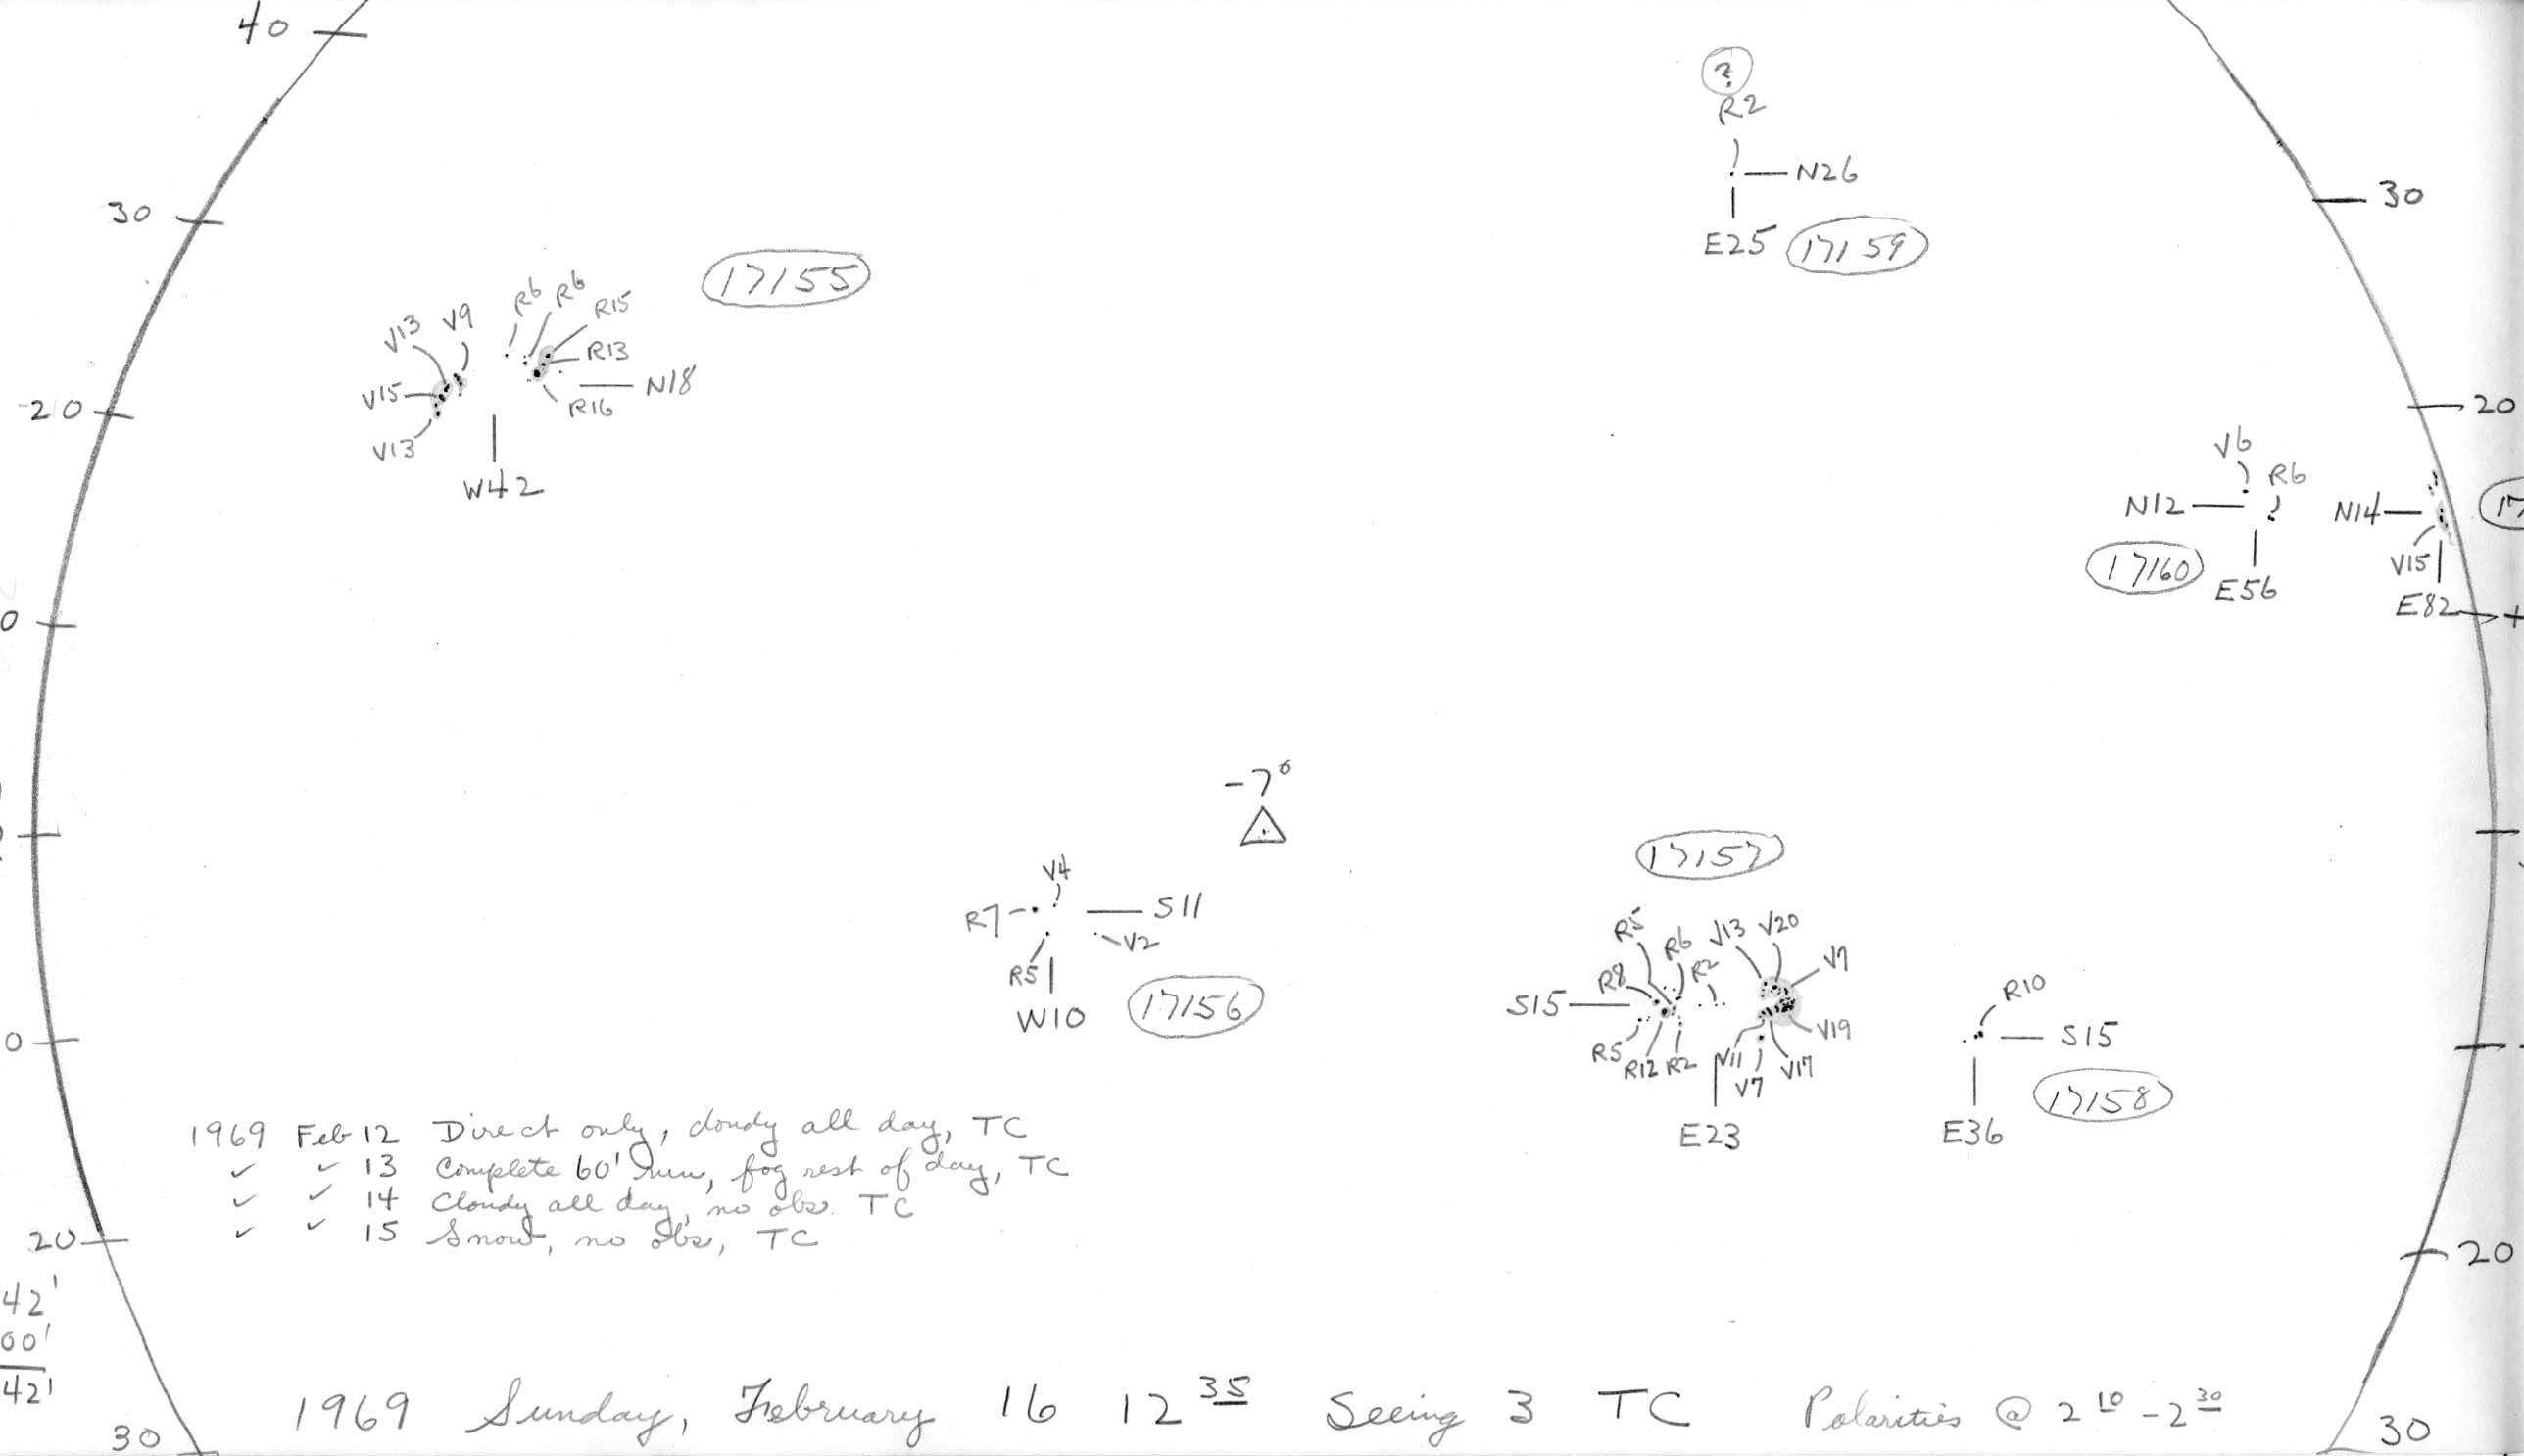 40
?
R2
N26
E25 17159
30
30
17155
R6 R6 R15
V13 V9
R13
V15
R16
N18
V13
W42
20
20
V6
R6
N12
N14
17160
E56
V15
E82
0
-7°
V4
R7
S11
V2
R5
W10
17156
17157
R5 R6 V13 V20
R8 R2 V7
S15
R5 R12 R2 V11 V7 V17 V19
E23
R10
S15
E36
17158
0
1969 Feb 12 Direct only, cloudy all day, TC
✓ ✓ 13 Complete 60' run, fog rest of day, TC
✓ ✓ 14 Cloudy all day, no obs. TC
✓ ✓ 15 Snow, no obs, TC
20
20
42'
00'
42'
1969 Sunday, February 16 12 35 Seeing 3 TC Polarities @ 2 10 - 2 30
30
30